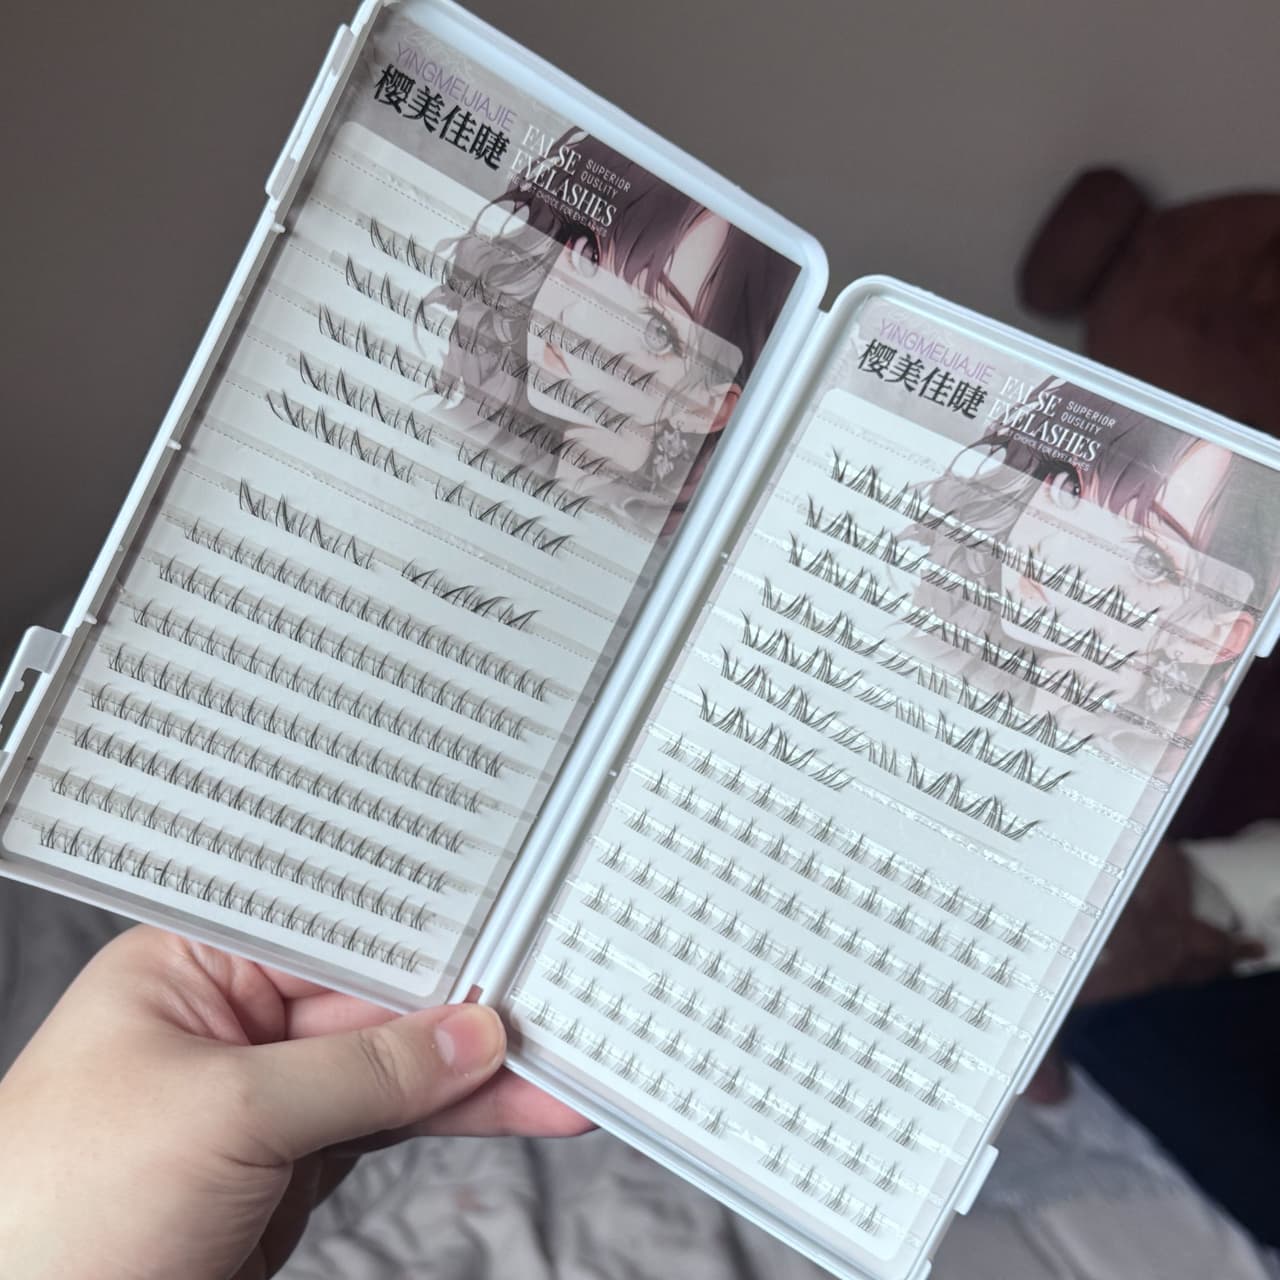 YINGMEIJIAJIE
樱美佳睫
FALSE
EYELASHES
SUPERIOR
QUSLITY
CHOICE FOR EYELASHES
YINGMEIJIAJIE
樱美佳睫
FALSE
EYELASHES
SUPERIOR
QUSLITY
CHOICE FOR EYELASHES